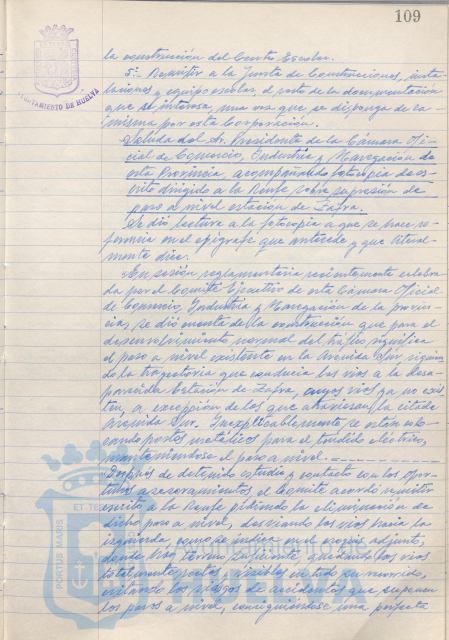 109
AYUNTAMIENTO DE HUELVA
la construcción del Centro Escolar.
5º.- Remitir a la Junta de Construcciones, insta-
laciones y equipo escolar, el resto de la documentación
que se interesa, una vez que se disponga de la
misma por esta Corporación.
Saluda del Sr. Presidente de la Cámara Ofi-
cial de Comercio, Industria y Navegación de
esta Provincia, acompañando fotocopia de es-
crito dirigido a la Renfe sobre supresión de
paso a nivel estación de Zafra.
Se dió lectura a la fotocopia a que se hace re-
ferencia en el epígrafe que antecede y que literal-
mente dice:
"En sesión reglamentaria recientemente celebra-
da por el Comité Ejecutivo de esta Cámara Oficial
de Comercio, Industria y Navegación de la provin-
cia, se dió cuenta de la construcción que para el
desenvolvimiento normal del tráfico significa
el paso a nivel existente en la Avenida Sur, siguien-
do la trayectoria que conducía las vías a la desa-
parecida Estación de Zafra, cuyas vías ya no exis-
ten, a excepción de las que atraviesan la citada
Avenida Sur. Inexplicablemente se están colo-
cando postes metálicos para el tendido eléctrico,
manteniéndose el paso a nivel.
Después de detenido estudio y contacto con los opor-
tunos asesoramientos el Comité acordó remitir
escrito a la Renfe pidiendo la eliminación de
dicho paso a nivel, desviando las vías hacia la
izquierda, como se indica en el croquis adjunto,
donde hay terreno suficiente, quedando las vías
totalmente rectas y visibles en todo su recorrido,
evitando los riesgos de accidentes que suponen
los pasos a nivel, consiguiéndose una perfecta
PORTUS MARIS ET TE